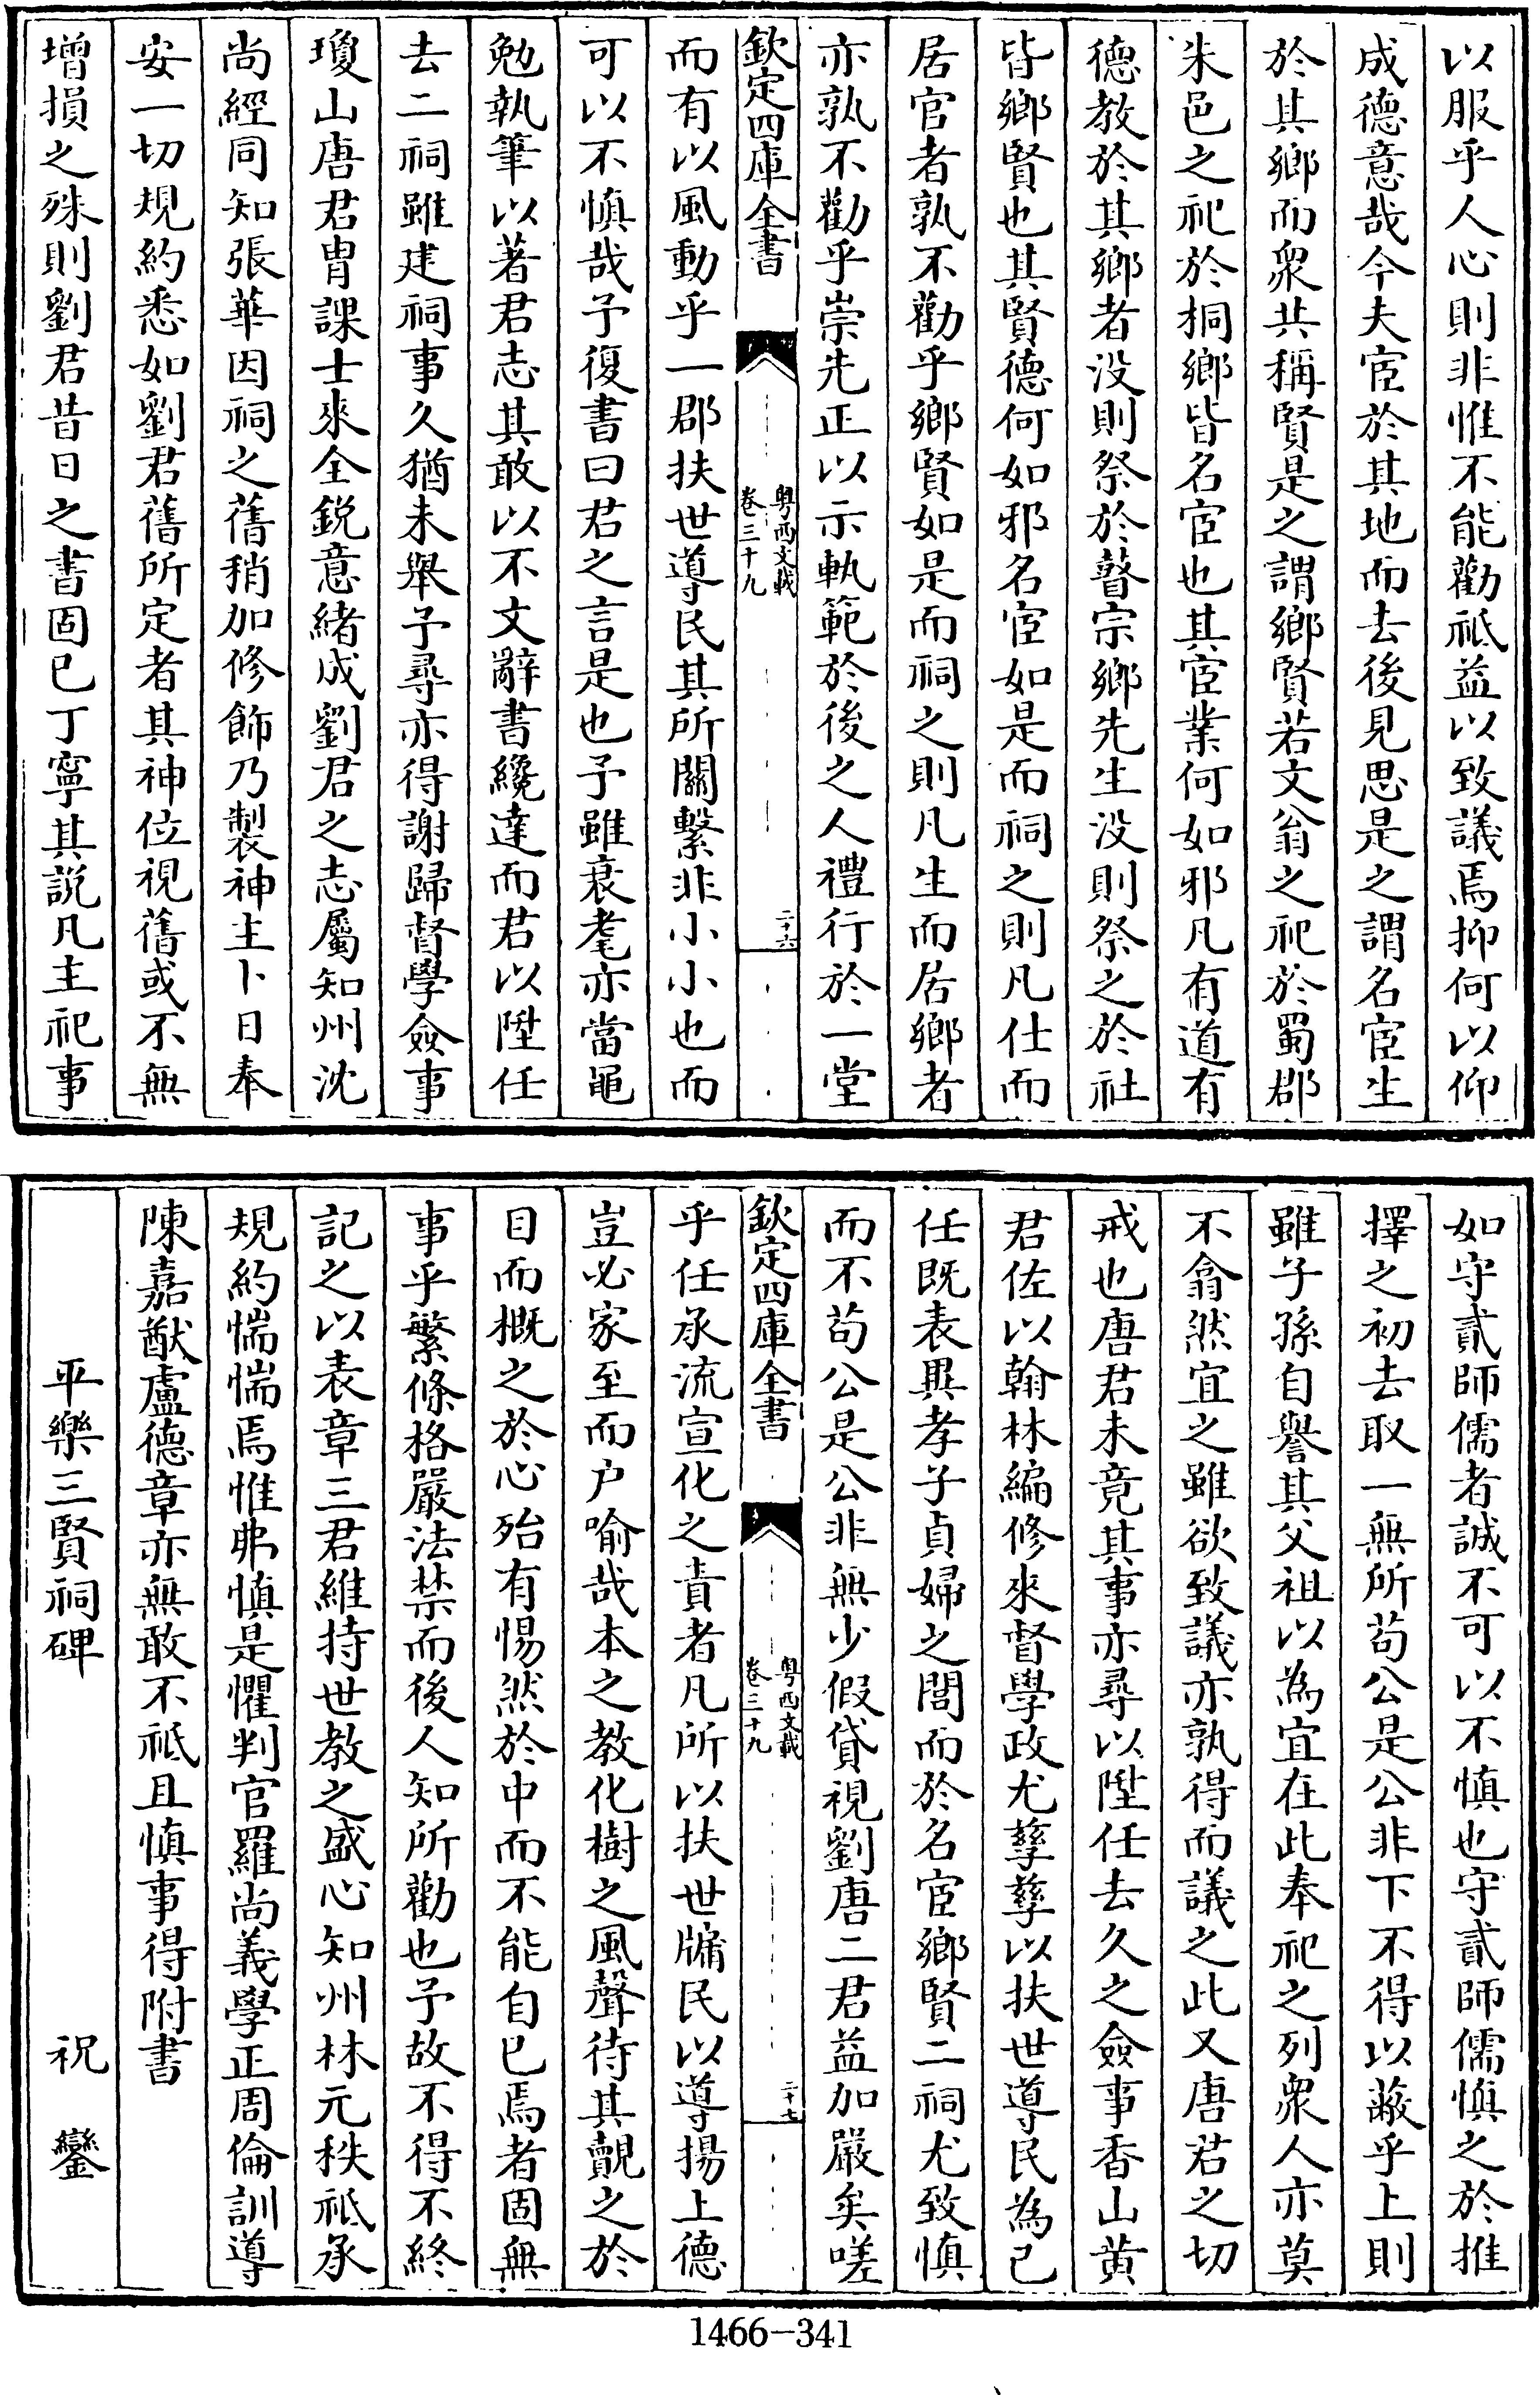 以服乎人心則非惟不能勸祗益以致議焉抑何以仰
成德意哉今夫宦於其地而去後見思是之謂名宦生
於其鄉而衆共稱賢是之謂鄉賢若文翁之祀於蜀郡
朱邑之祀於桐鄉皆名宦也其宦業何如邪凡有道有
德教於其鄉者没則祭於瞽宗鄉先生没則祭之於社
皆鄉賢也其賢德何如邪名宦如是而祠之則凡仕而
居官者孰不勸乎鄉賢如是而祠之則凡生而居鄉者
亦孰不勸乎崇先正以示執範於後之人禮行於一堂
欽定四庫全書
粤西文載
卷三十九
二十六
而有以風動乎一郡扶世導民其所關繫非小小也而
可以不慎哉予復書曰君之言是也予雖衰耄亦當黽
勉執筆以著君志其敢以不文辭書纔達而君以陞任
去二祠雖建祠事久猶未舉予尋亦得謝歸督學僉事
瓊山唐君胄課士來全銳意緒成劉君之志屬知州沈
尚經同知張華因祠之舊稍加修飾乃製神主卜日奉
安一切規約悉如劉君舊所定者其神位視舊或不無
增損之殊則劉君昔日之書固已丁寧其說凡主祀事
如守貳師儒者誠不可以不慎也守貳師儒慎之於推
擇之初去取一無所茍公是公非下不得以蔽乎上則
雖子孫自譽其父祖以為宜在此奉祀之列衆人亦莫
不翕然宜之雖欲致議亦孰得而議之此又唐君之切
戒也唐君未竟其事亦尋以陞任去久之僉事香山黄
君佐以翰林編修來督學政尤孳孳以扶世導民為己
任既表異孝子貞婦之閭而於名宦鄉賢二祠尤致慎
而不茍公是公非無少假貸視劉唐二君益加嚴矣嗟
欽定四庫全書
粤西文載
卷三十九
二十七
乎任承流宣化之責者凡所以扶世牖民以導揚上德
豈必家至而户喻哉本之教化樹之風聲待其覿之於
目而概之於心殆有惕然於中而不能自已焉者固無
事乎繁條格嚴法禁而後人知所勸也予故不得不終
記之以表章三君維持世教之盛心知州林元秩祗承
規約惴惴焉惟弗慎是懼判官羅尚義學正周倫訓導
陳嘉猷盧德章亦無敢不祗且慎事得附書
平樂三賢祠碑　祝鑾
1466-341